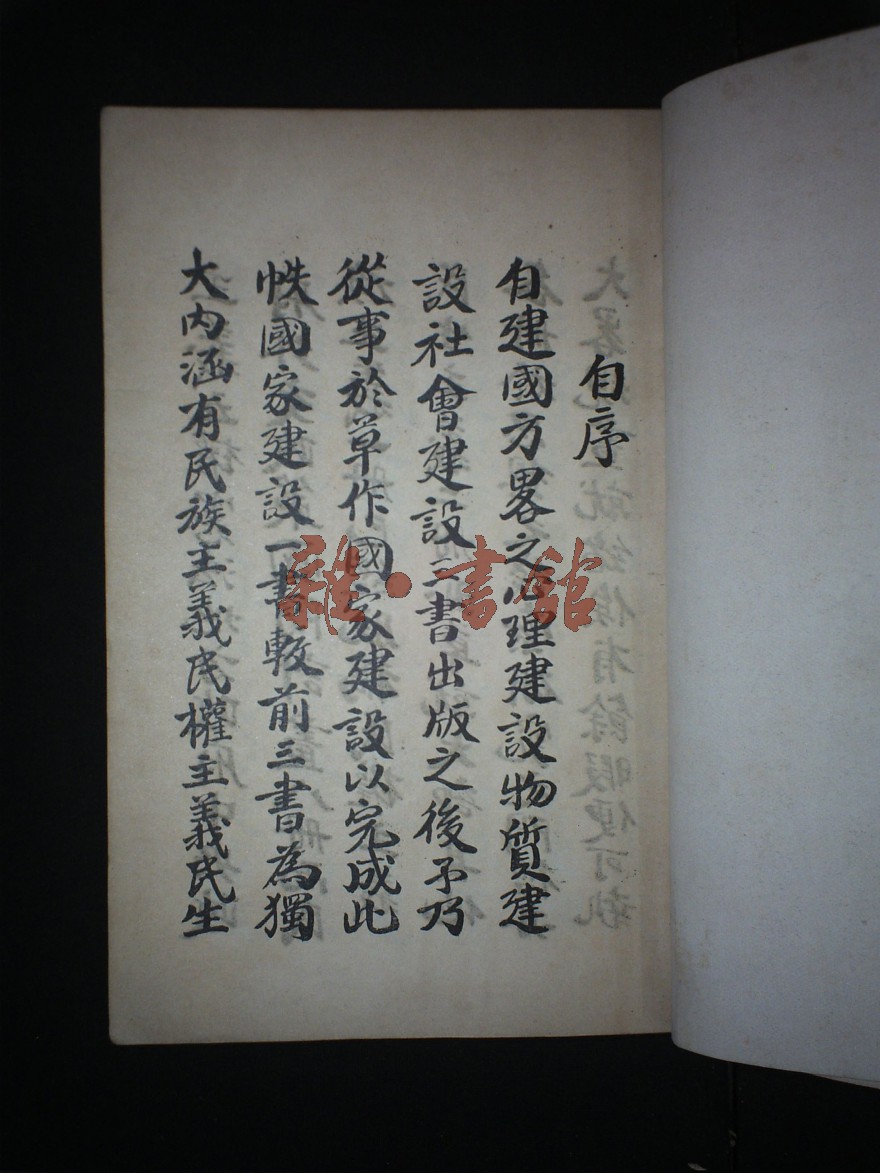 自序
自建國方畧之心理建設物質建
設社會建設三書出版之後予乃
從事於草作國家建設以完成此
帙國家建設一書較前三書為獨
大內涵有民族主義民權主義民生
雜·書館